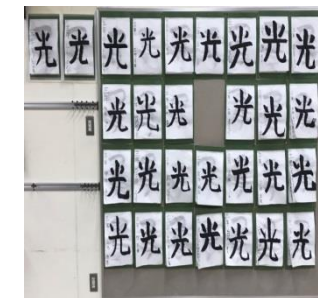 光 光 光 光 光 光 光 光 光
光 光 光 光 光 光
光 光 光 光 光 光 光
光 光 光 光 光 光 光